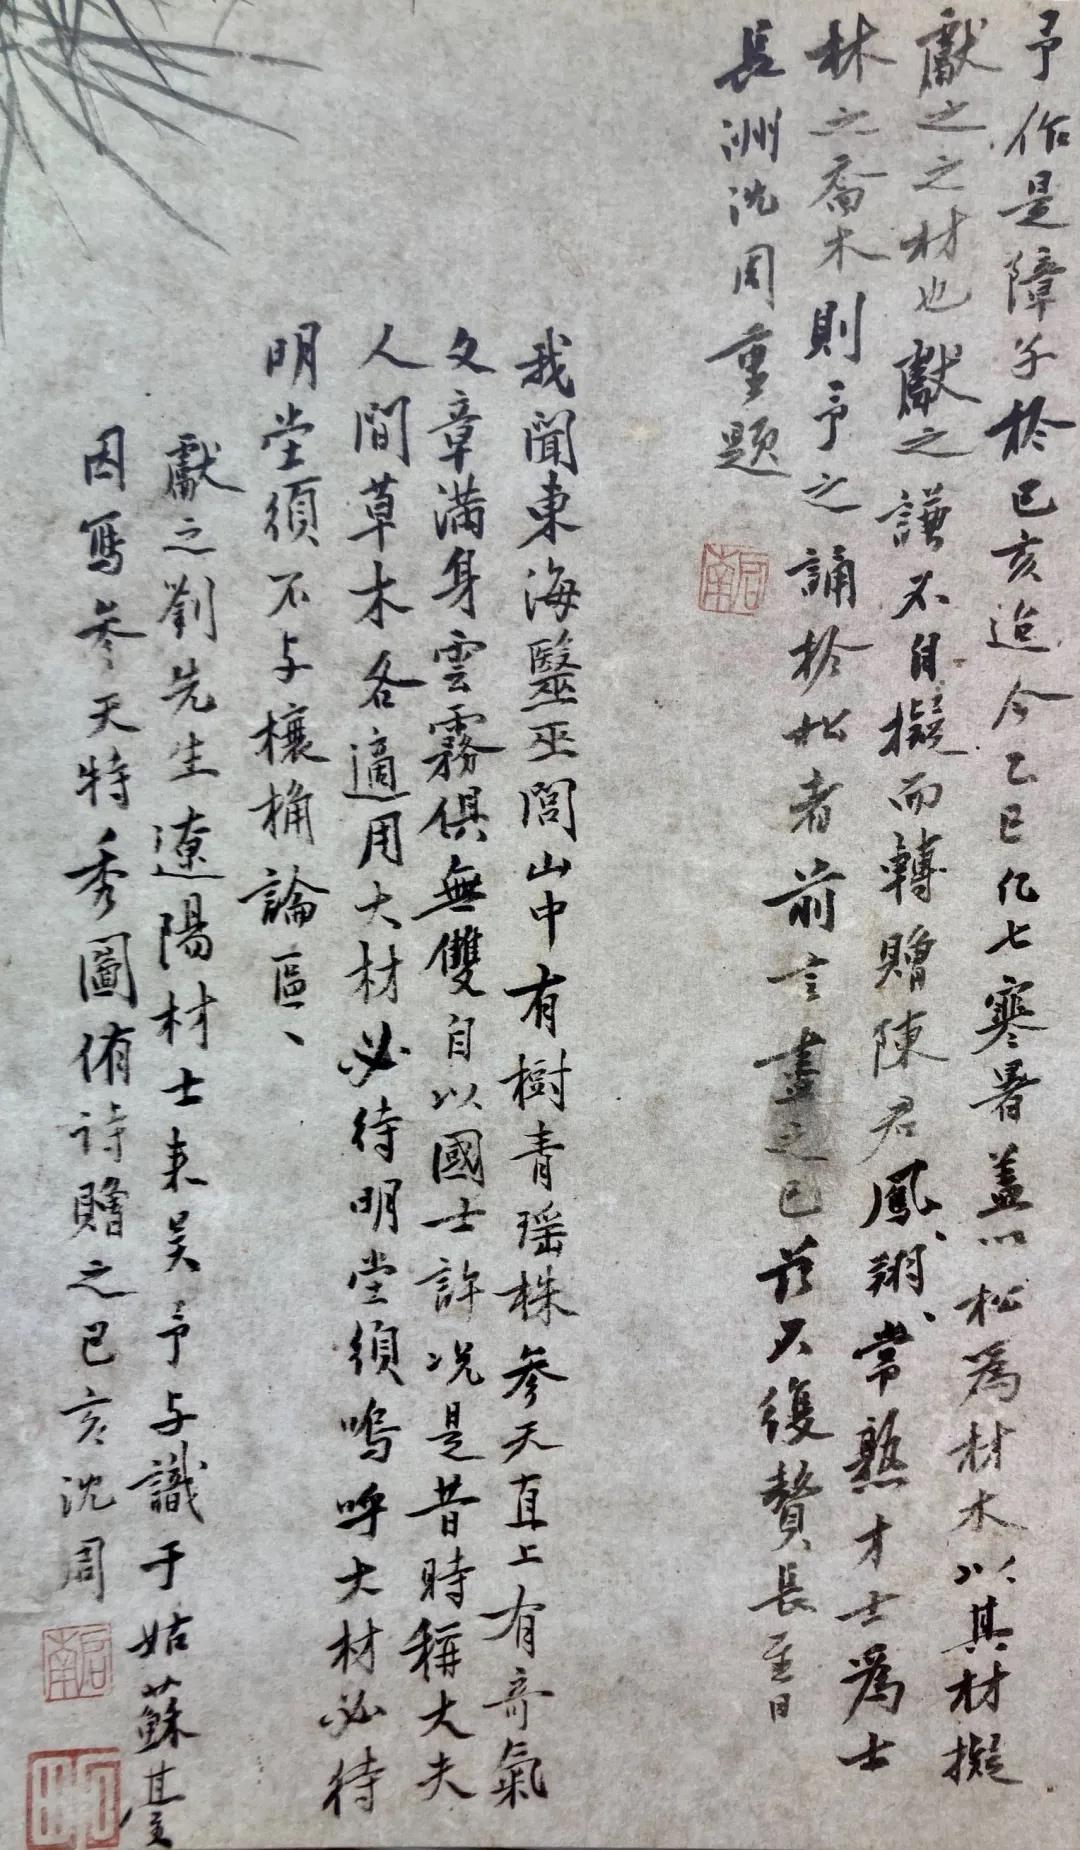 予作是障子於己亥迨今乙巳凡七寒暑蓋以松為材木以其材擬
獻之之材也獻之謙不自擬而轉贈陳君鳳翔常熟才士為士
林之喬木則予之誦於松者前言盡之已茲不復贊長至日
長洲沈周重題
啟南
我聞東海醫巫閭山中有樹青瑶株參天直上有奇氣
文章滿身雲霧俱無雙自以國士許況是昔時稱大夫
人間草木各適用大材必待明堂須嗚呼大材必待
明堂須不与榱桷論區、
獻之劉先生遼陽材士来吳予与識于姑蘇臺
因寫參天特秀圖侑詩贈之己亥沈周
啟南